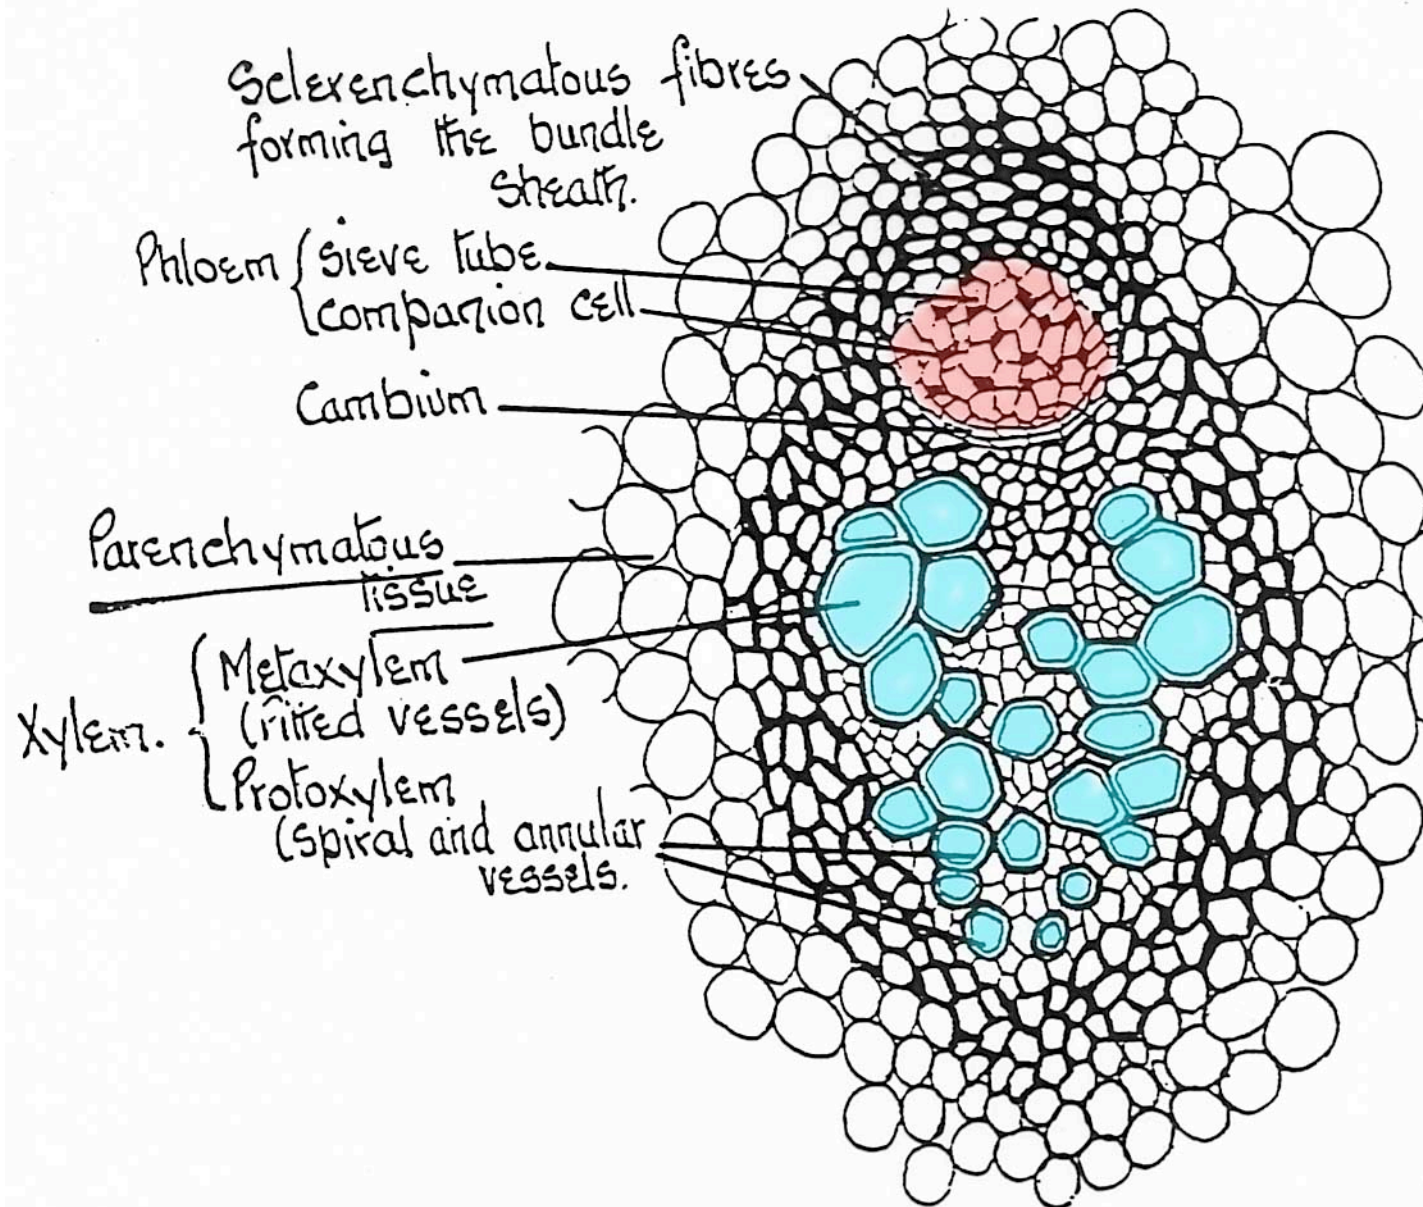 Sclerenchymatous fibres
forming the bundle
sheath.
Phloem { sieve tube
companion cell
Cambium
Parenchymatous
tissue
Metaxylem
(Pitted vessels)
Xylem.
Protoxylem
(spiral and annular
vessels.